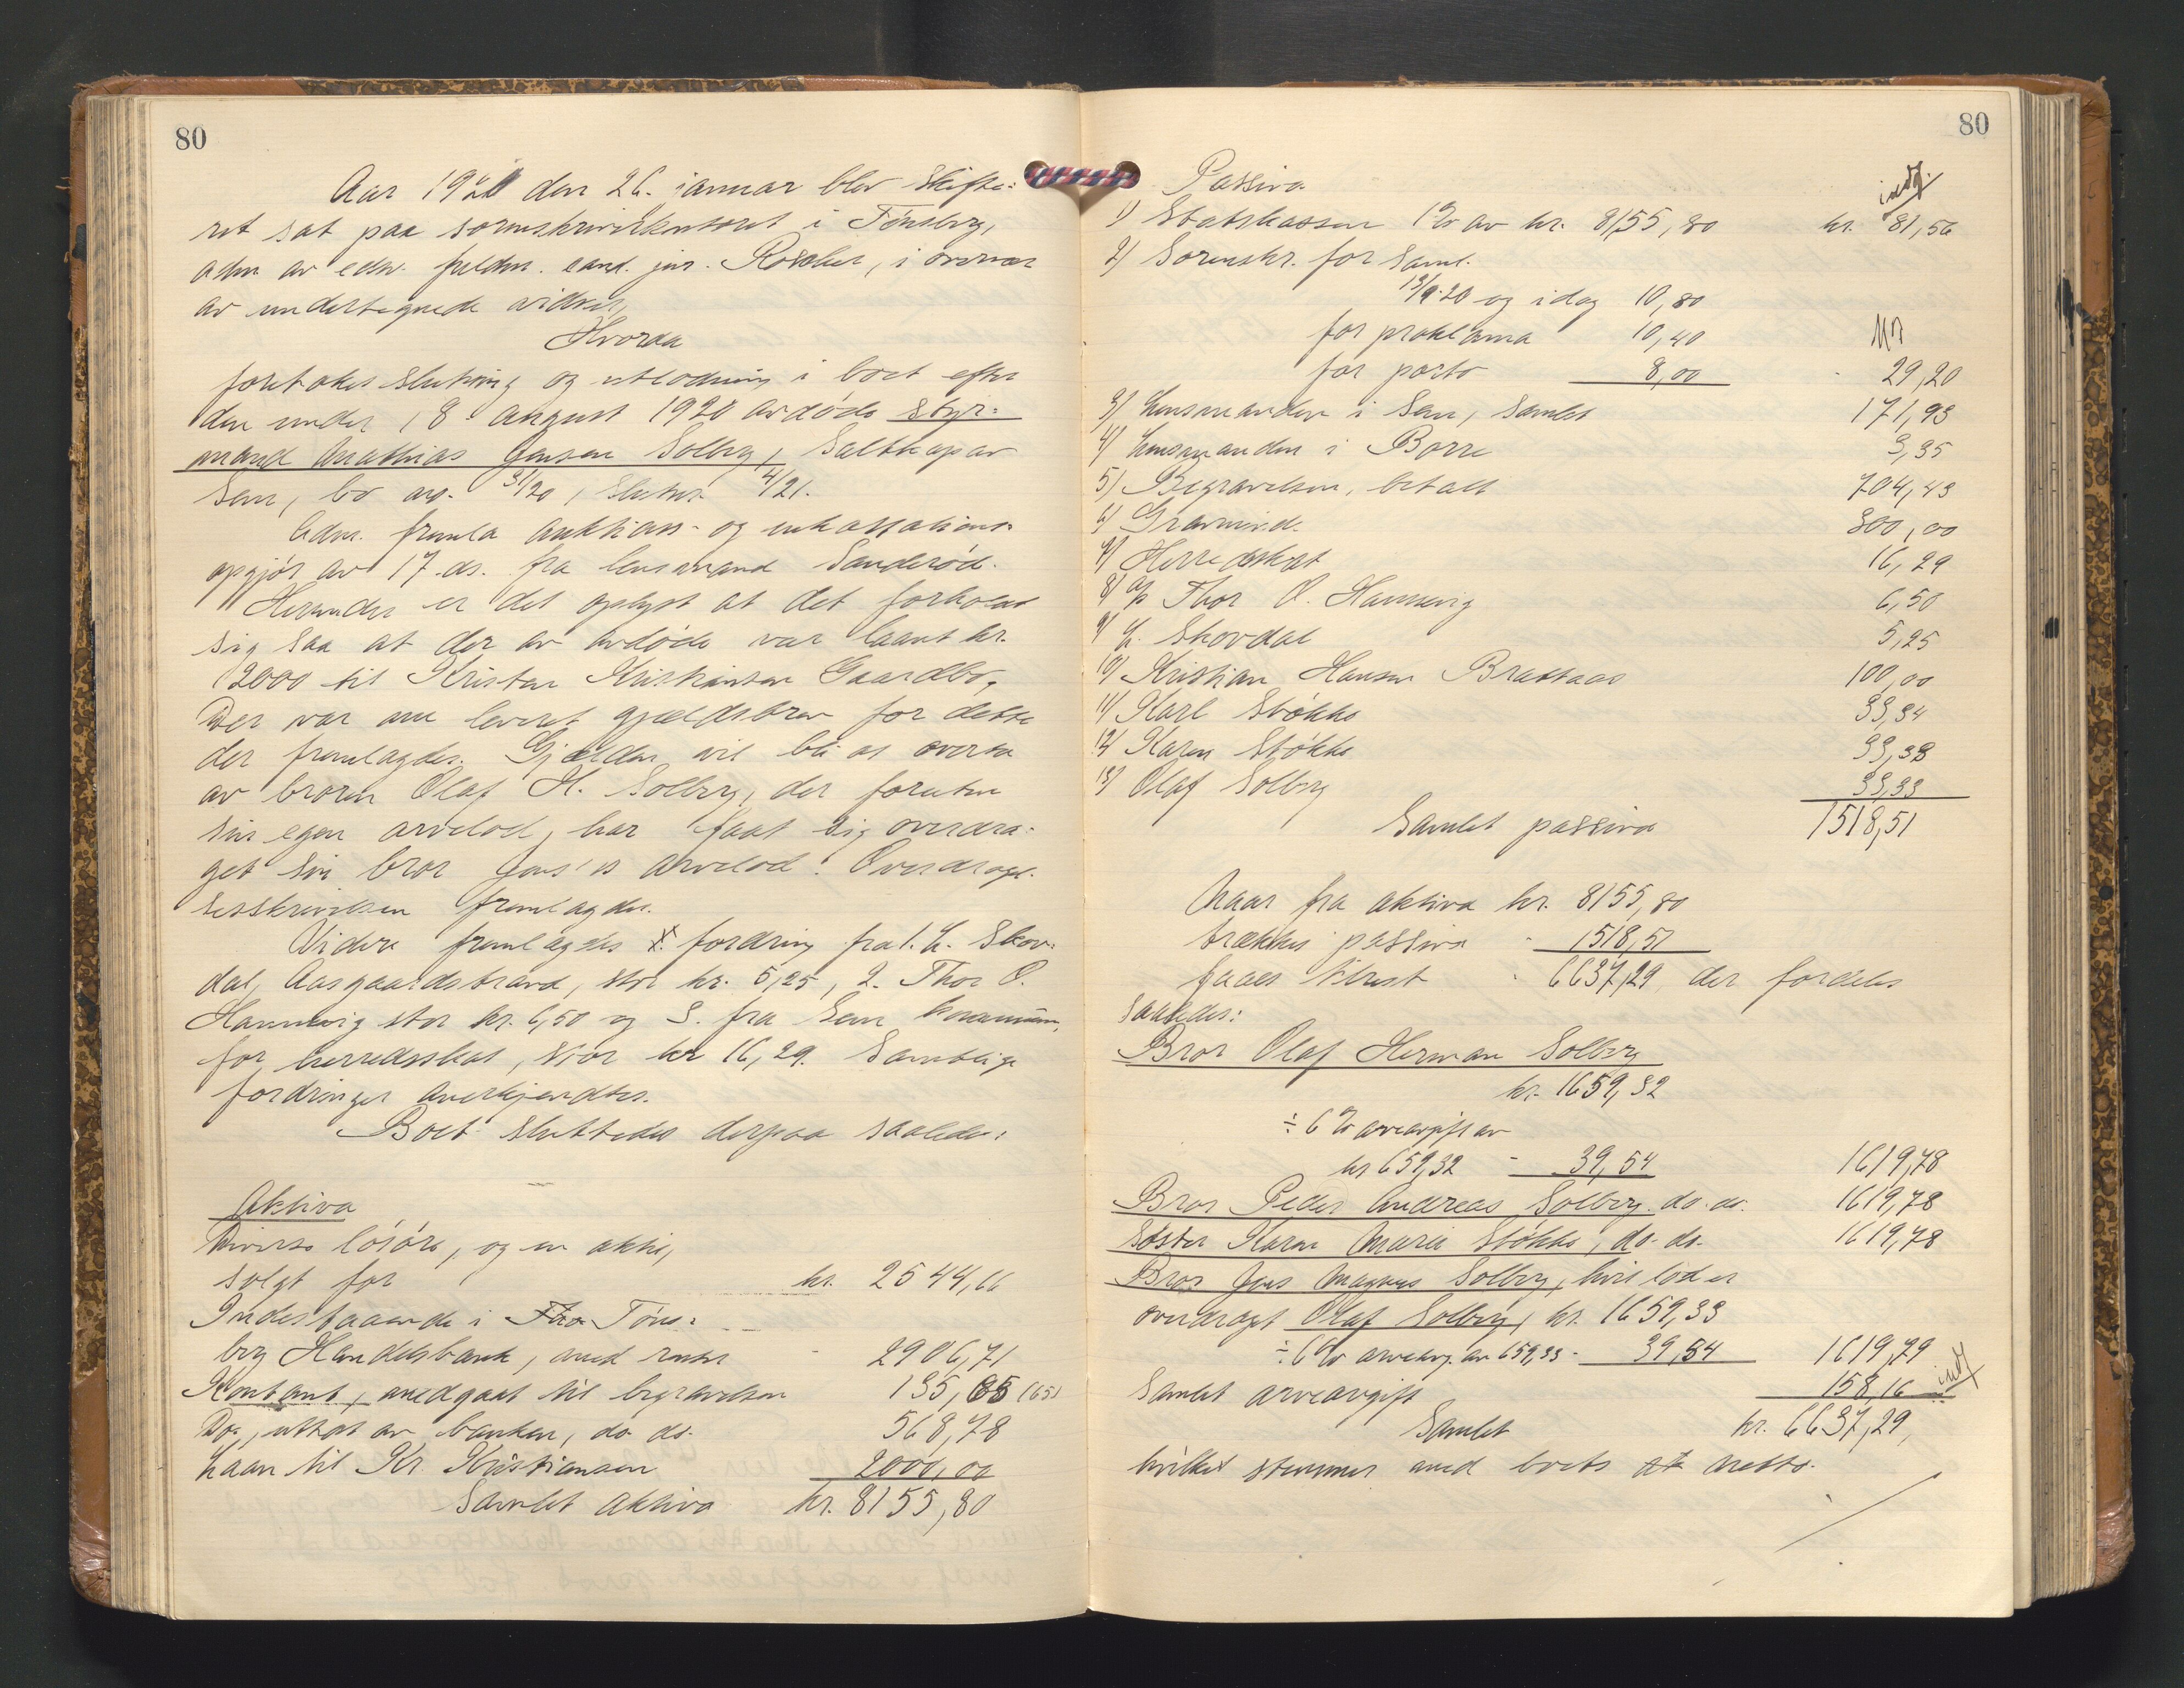 80
Aar 1921 den 26. januar blev skifte-
ret sat paa sorenskriverkontoret i Tønsberg,
adm av edsv. fuldm. cand. jur. Roscher, i overvær
av undertegnede vidner,
Hvorda
foretokes slutning og utlodning i boet efter
den under 18 august 1920 avdøde styr-
mand Mathias Jensen Solberg, Saltkopav
Sem, bo no. 31/20, sluttes 4/21.
Adm. fremla auktions- og inkassations-
opgjør av 17. ds. fra lensmand Sanderød.
Herunder er det oplyst at det forholdt
sig saa at der av avdøde var laant kr.
2000 til Kristen Kristiansen Gaardbo.
Der var nu leveret gjældsbrev for dette
der fremlagdes. Gjælden vil bli at overta
av broren Olaf H. Solberg, der foruten
sin egen arvelod, har faat sig overdra-
get sin bror Jens's arvelod. Overdragel-
sesskrivelsen fremlagdes.
Videre fremlagdes x. fordring fra 1. L. Skov-
dal, Aasgaardstrand, stor kr. 5,25, 2. Thor O.
Hannevig stor kr. 6,50 og 3. fra Sem kommune,
for herredsskat, stor kr 16,29. Samtlige
fordringer anerkjendtes.
Boet sluttedes derpaa saaledes:
Aktiva
Diverse løsøre, og en aktie,
solgt for kr. 2544,66
Indestaaende i Tøns-
berg Handelsbank, med renter - 2906,71
Kontant, medgaat til begravelsen 135,65 (65)
Do., uttat av banken, do. do. 568,78
Laan til Kr. Kristiansen 2000,00
Samlet aktiva kr. 8155,80
80
Passiva
indg.
1) Statskassen 1% av kr. 8155,80 kr. 81,56
2) Sorenskr. for saml.
13/9-20 og idag 10,80
for proklama 10,40
for porto 8,00 - 29,20
3) Lensmanden i Sem, samlet 171,93
4) Lensmanden i Borre 3,35
5) Begravelsen, betalt 704,43
6) Gravmind. 300,00
7) Herredsskat 16,29
8) A/S Thor O. Hannevig 6,50
9) L. Skovdal 5,25
10) Kristian Hansen Brattaas 100,00
11) Karl Støkke 33,34
12) Karen Støkke 33,33
13) Olaf Solberg 33,33
Samlet passiva 1518,51
Naar fra aktiva kr. 8155,80
trækkes passiva - 1518,51
faaes tilrest - 6637,29 der fordeles
saaledes:
Bror Olaf Herman Solberg
kr. 1659,32
÷ 6% arveavgift av
kr 659,32 - 39,54 1619,78
Bror Peder Andreas Solberg. do. do. 1619,78
Søster Karen Marie Støkke, do. do. 1619,78
Bror Jens Magnus Solberg, hvis lod er
overdraget Olaf Solberg, kr. 1659,33
÷ 6% arveavg. av 659,33 - 39,54 1619,79
Samlet arveavgift 158,16 indg
Samlet kr. 6637,29,
hvilket stemmer med boets netto.